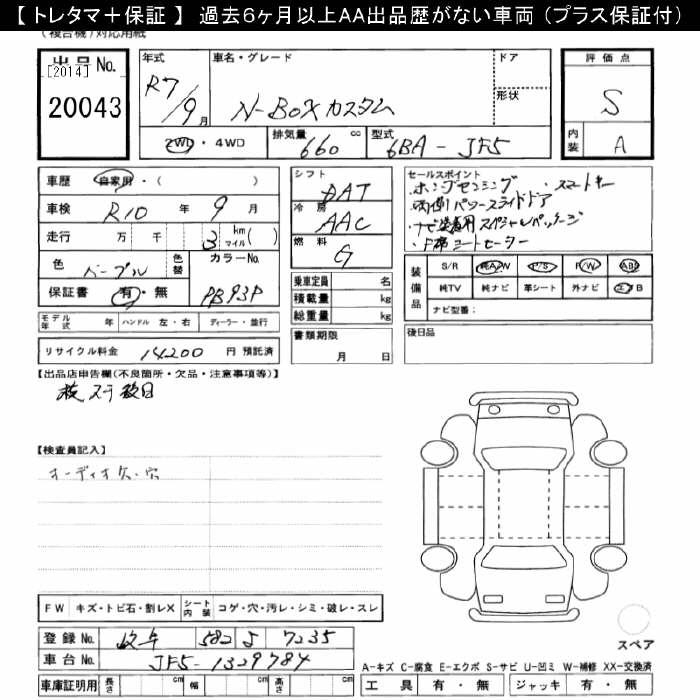 【トレタマ＋保証】 過去6ヶ月以上AA出品歴がない車両（プラス保証付）
(複合機)対応用紙
出品No.
[2014]
20043
年式
R7/9月
車名・グレード
N-BOXカスタム
ドア
形状
評価点
S
内装
A
2WD・4WD
排気量
660 cc
型式
6BA-JF5
車歴
自家用・( )
車検
R10 年 9 月
走行
万 千 3 km マイル( )
色
パープル
色替
カラーNo.
PB93P
保証書 有・無
モデル年式 年 ハンドル 左・右 ディーラー・並行
リサイクル料金 14200 円 預託済
シフト
DAT
冷房
AAC
燃料
G
乗車定員 名
積載量 kg
総重量 kg
書類期限
月 日
セールスポイント
・ホンダセンシング ・スマートキー
・両側パワースライドドア
・ナビ装着用スペシャルパッケージ
・F席シートヒーター
装備品
S/R 純A/W P/S P/W ABS
純TV 純ナビ 革シート 外ナビ エアB
ナビ型番：
後日品
【出品店申告欄(不良箇所・欠品・注意事項等)】
検ステ数日
【検査員記入】
オーディオ欠・穴
FW キズ・トビ石・割レX シート内装 コゲ・穴・汚レ・シミ・破レ・スレ
登録No. 岐阜 582 よ 7235
車台No. JF5-1329784
車庫証明用 長さ cm 幅 cm 高さ cm
スペア
A-キズ C-腐食 E-エクボ S-サビ U-凹ミ W-補修 XX-交換済
工具 有・無 ジャッキ 有・無